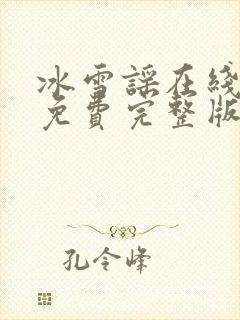 冰雪謡在綫
免費完整版
孔令峰